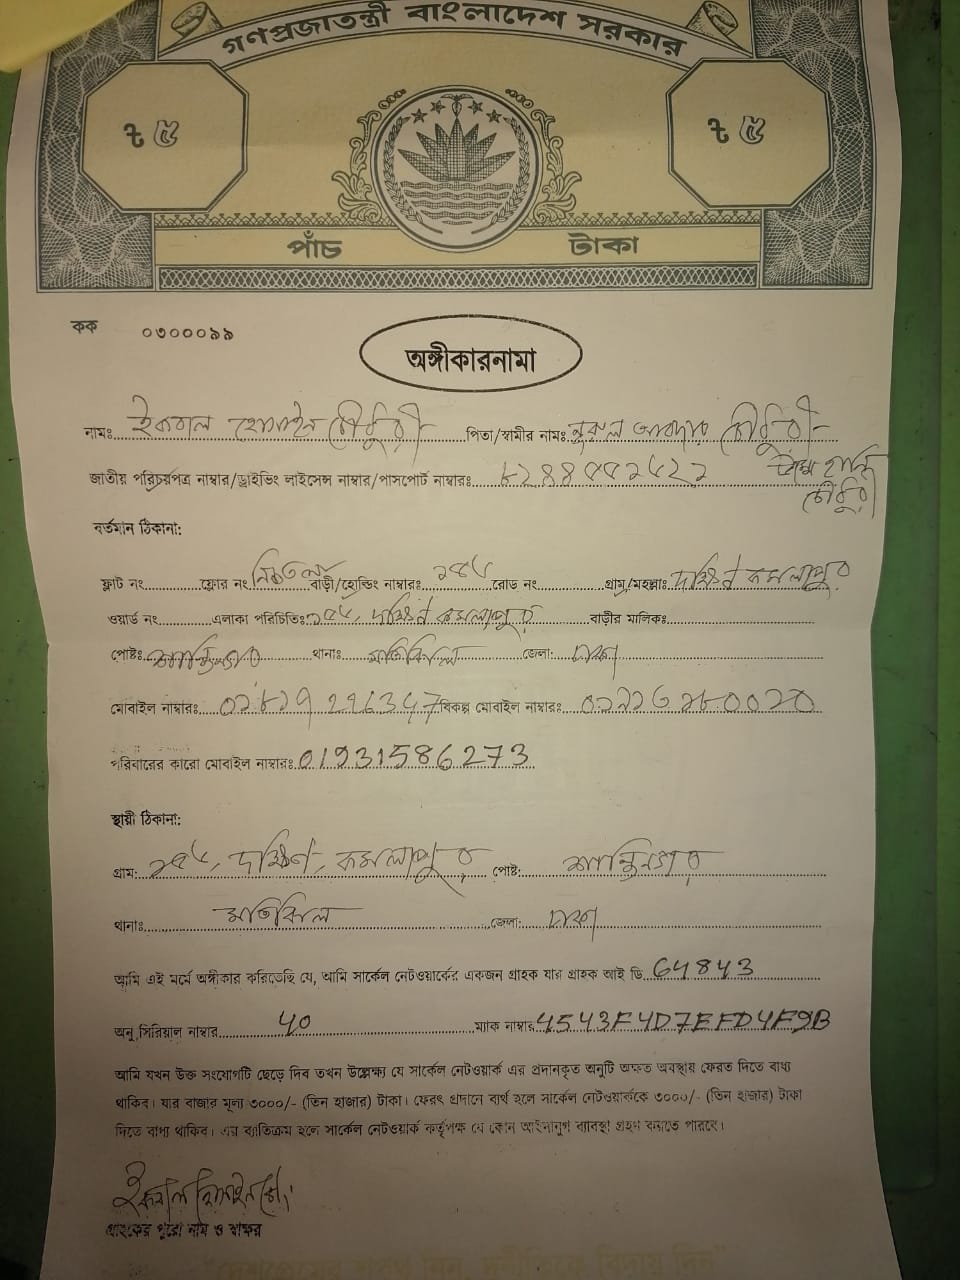 গণপ্রজাতন্ত্রী বাংলাদেশ সরকার
৳ ৫ ৳ ৫
পাঁচ টাকা
কক ০৩০০০৯৯
অঙ্গীকারনামা
নামঃ ইকবাল হোসাইন চৌধুরী পিতা/স্বামীর নামঃ নুরুল আবদার চৌধুরী
জাতীয় পরিচয়পত্র নাম্বার/ড্রাইভিং লাইসেন্স নাম্বার/পাসপোর্ট নাম্বারঃ
চৌধুরী
বর্তমান ঠিকানা:
ফ্লাট নং ফ্লোর নং নিচতলা বাড়ী/হোল্ডিং নাম্বারঃ রোড নং গ্রাম/মহল্লাঃ দক্ষিণ কমলাপুর
ওয়ার্ড নং এলাকা পরিচিতিঃ দক্ষিণ কমলাপুর বাড়ীর মালিকঃ
পোষ্টঃ শান্তিনগর থানাঃ মতিঝিল জেলা: ঢাকা
মোবাইল নাম্বারঃ বিকল্প মোবাইল নাম্বারঃ
পরিবারের কারো মোবাইল নাম্বারঃ 01931586273
স্থায়ী ঠিকানা:
গ্রাম: দক্ষিণ, কমলাপুর পোষ্ট: শান্তিনগর
থানাঃ মতিঝিল জেলা: ঢাকা
আমি এই মর্মে অঙ্গীকার করিতেছি যে, আমি সার্কেল নেটওয়ার্কের একজন গ্রাহক যার গ্রাহক আই ডি 64843
অনু সিরিয়াল নাম্বার 40 ম্যাক নাম্বার 4543F4D7EFD4F9B
আমি যখন উক্ত সংযোগটি ছেড়ে দিব তখন উল্লেক্ষ্য যে সার্কেল নেটওয়ার্ক এর প্রদানকৃত অনুটি অক্ষত অবস্থায় ফেরত দিতে বাধ্য
থাকিব। যার বাজার মূল্য ৩০০০/- (তিন হাজার) টাকা। ফেরৎ প্রদানে ব্যর্থ হলে সার্কেল নেটওয়ার্ককে ৩০০০/- (তিন হাজার) টাকা
দিতে বাধ্য থাকিব। এর ব্যতিক্রম হলে সার্কেল নেটওয়ার্ক কর্তৃপক্ষ যে কোন আইনানুগ ব্যবস্থা গ্রহণ করতে পারবে।
ইকবাল হোসাইন চৌ:
গ্রাহকের পুরো নাম ও স্বাক্ষর